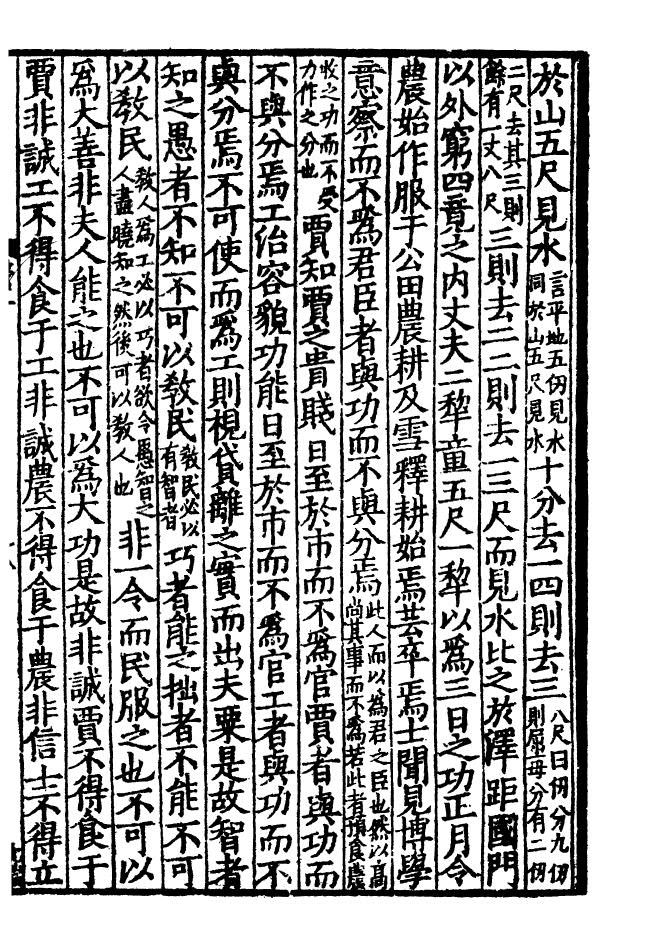 於山五尺見水言平地五仞見水同於山五尺見水十分去一四則去三八尺曰仞分九仞則屈每分有二仞
二尺去其三則餘有一丈八尺三則去二二則去一三尺而見水比之於澤距國門
以外窮四竟之内丈夫二犂童五尺一犂以爲三日之功正月令
農始作服于公田農耕及雪釋耕始焉芸卒焉士聞見博學
意察而不爲君臣者與功而不與分焉此人而以爲君之臣也然以高尚其事而不爲若此者預食農
收之功而不受力作之分也賈知賈之貴賤日至於市而不爲官賈者與功而
不與分焉工治容貌功能日至於市而不爲官工者與功而不
與分焉不可使而爲工則視貸離之實而出夫粟是故智者
知之愚者不知不可以敎民敎民必以有智者巧者能之拙者不能不可
以敎民敎人爲工必以巧者欲令愚智之人盡曉知之然後可以敎人也非一令而民服之也不可以
爲大善非夫人能之也不可以爲大功是故非誠賈不得食于
賈非誠工不得食于工非誠農不得食于農非信士不得立